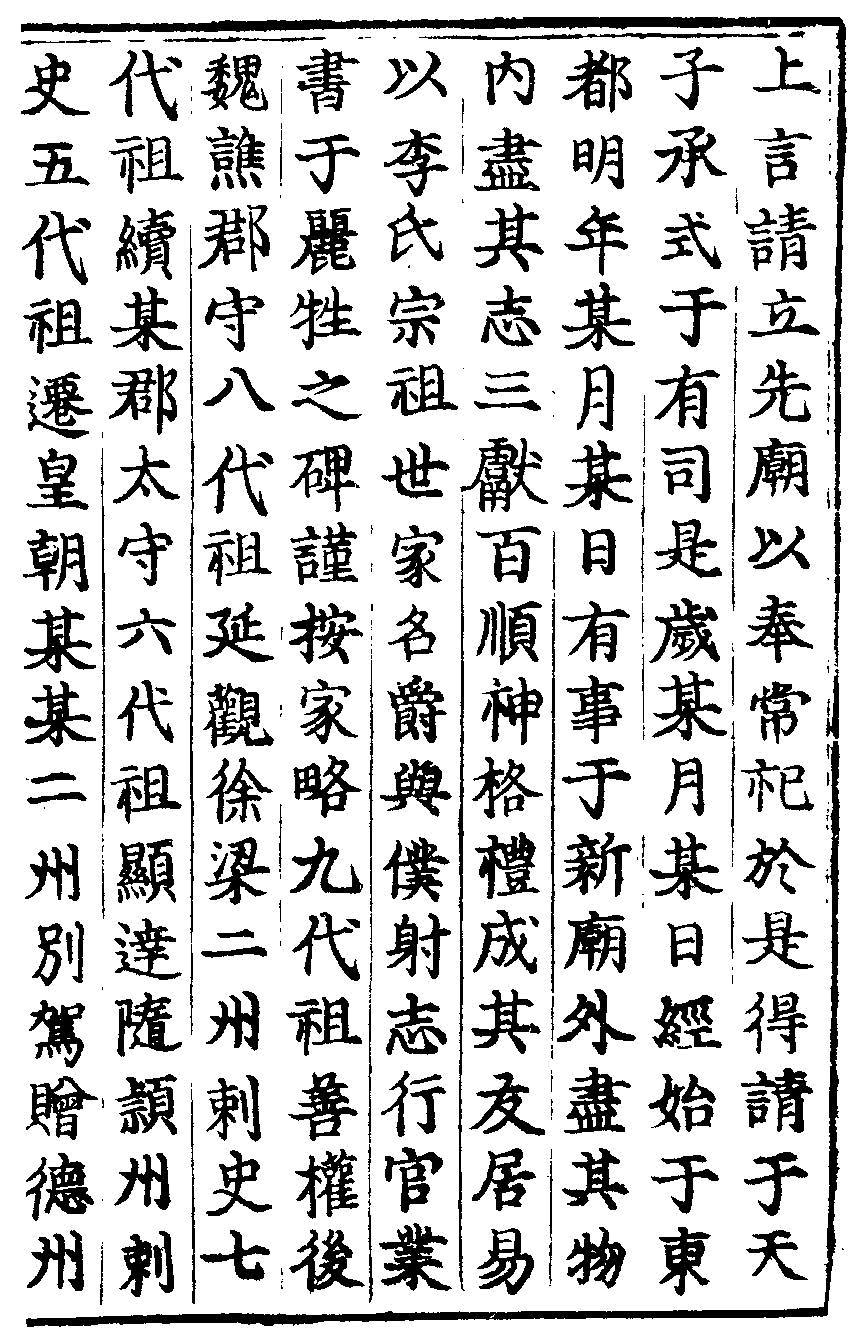 上言請立先廟以奉常祀於是得請于天
子承式于有司是歲某月某日經始于東
都明年某月某日有事于新廟外盡其物
内盡其志三獻百順神格禮成其友居易
以李氏宗祖世家名爵與僕射志行官業
書于麗牲之碑謹按家略九代祖善權後
魏譙郡守八代祖延觀徐梁二州刺史七
代祖續某郡太守六代祖顯達隨潁州刺
史五代祖遷皇朝某某二州別駕贈德州